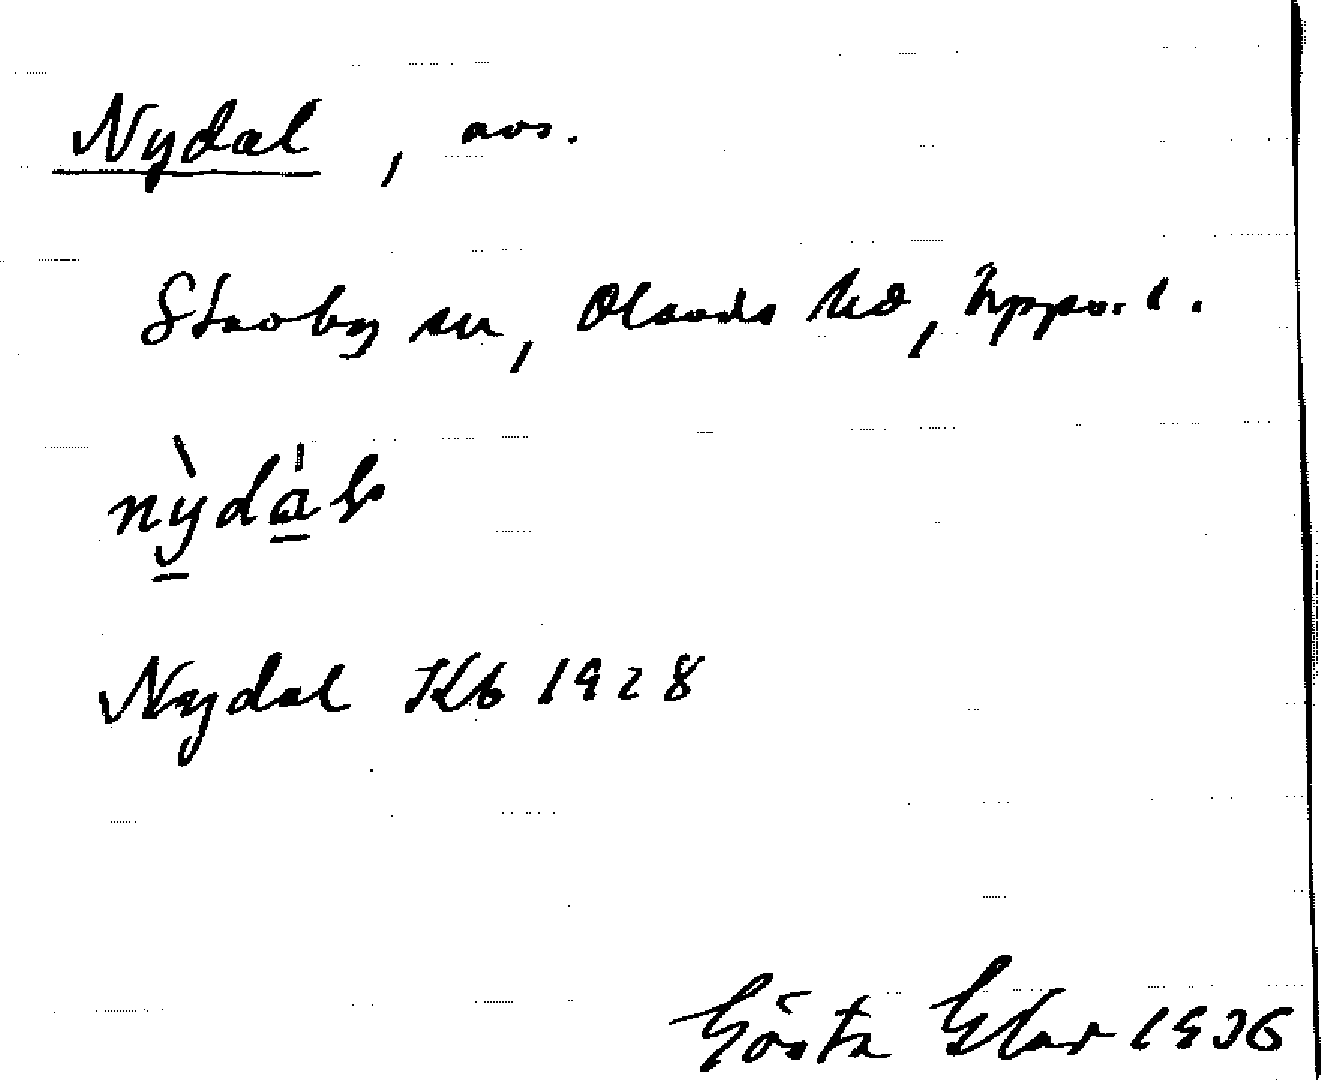 Nydal, avs.
Skoby sn, Olands hd, Upps. l.
nỳdȧl
Nydal Kb 1928
Gösta 1936